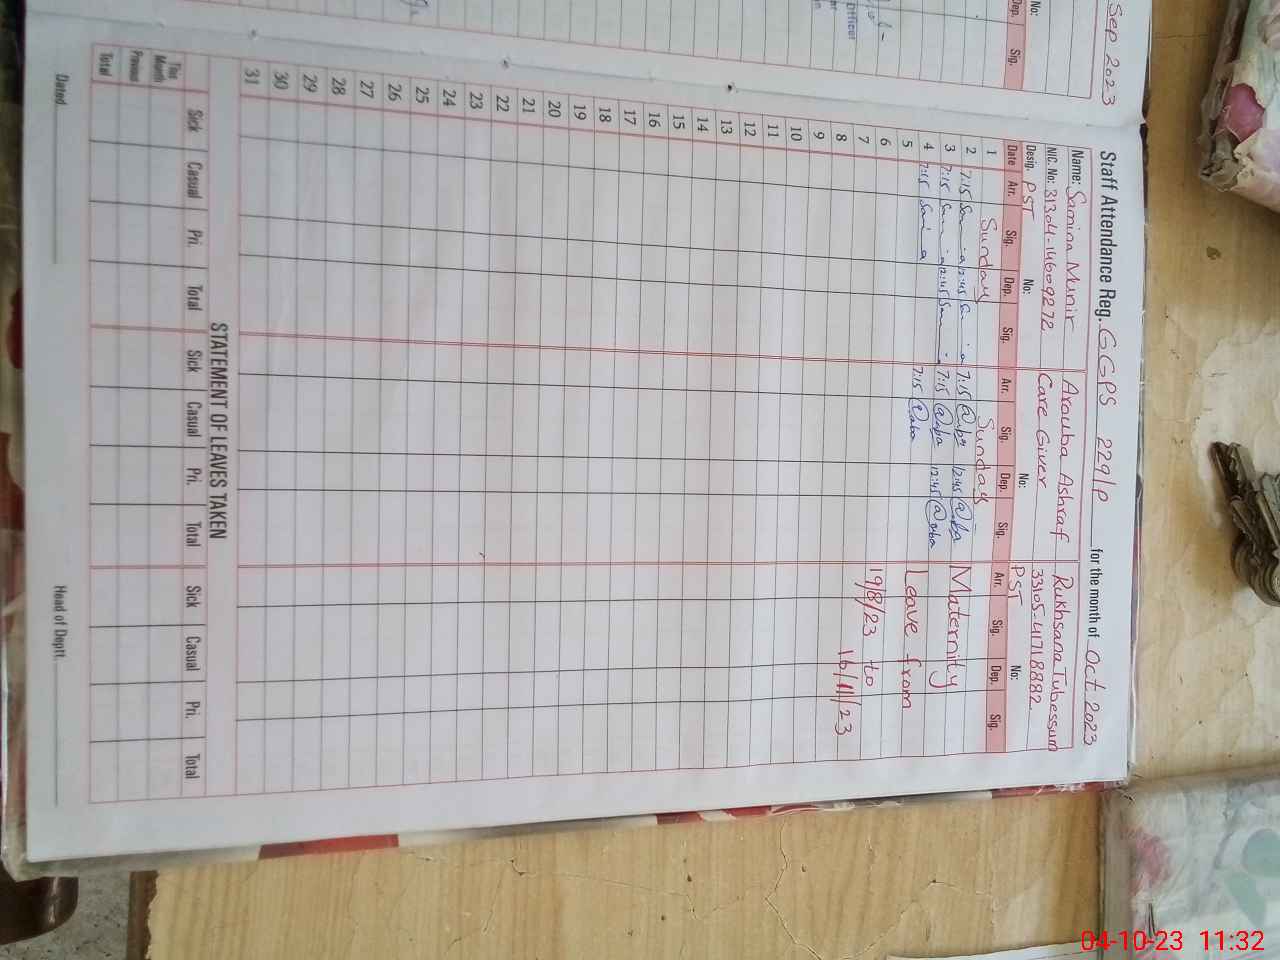 Sep 2023
No:
Dep. Sig.
officer
Staff Attendance Reg. GGPS 229/P for the month of Oct 2023
Name: Samina Munir Arouba Ashraf Rukhsana Tubessum
NIC. No: 31304-14609272 Care Giver 33105-41718882
Desig. PST No: No: PST No:
Date Arr. Sig. Dep. Sig. Arr. Sig. Dep. Sig. Arr. Sig. Dep. Sig.
1 Sunday Sunday
2 7:15 12:45 7:15 12:45 Maternity
3 7:15 12:45 7:15 12:45
4 7:15 7:15 Leave from
5
6 19/8/23 to
7 16/11/23
8
9
10
11
12
13
14
15
16
17
18
19
20
21
22
23
24
25
26
27
28
29
30
31
STATEMENT OF LEAVES TAKEN
Sick Casual Pri. Total Sick Casual Pri. Total Sick Casual Pri. Total
This Month
Previous
Total
Dated Head of Deptt.
04-10-23 11:32